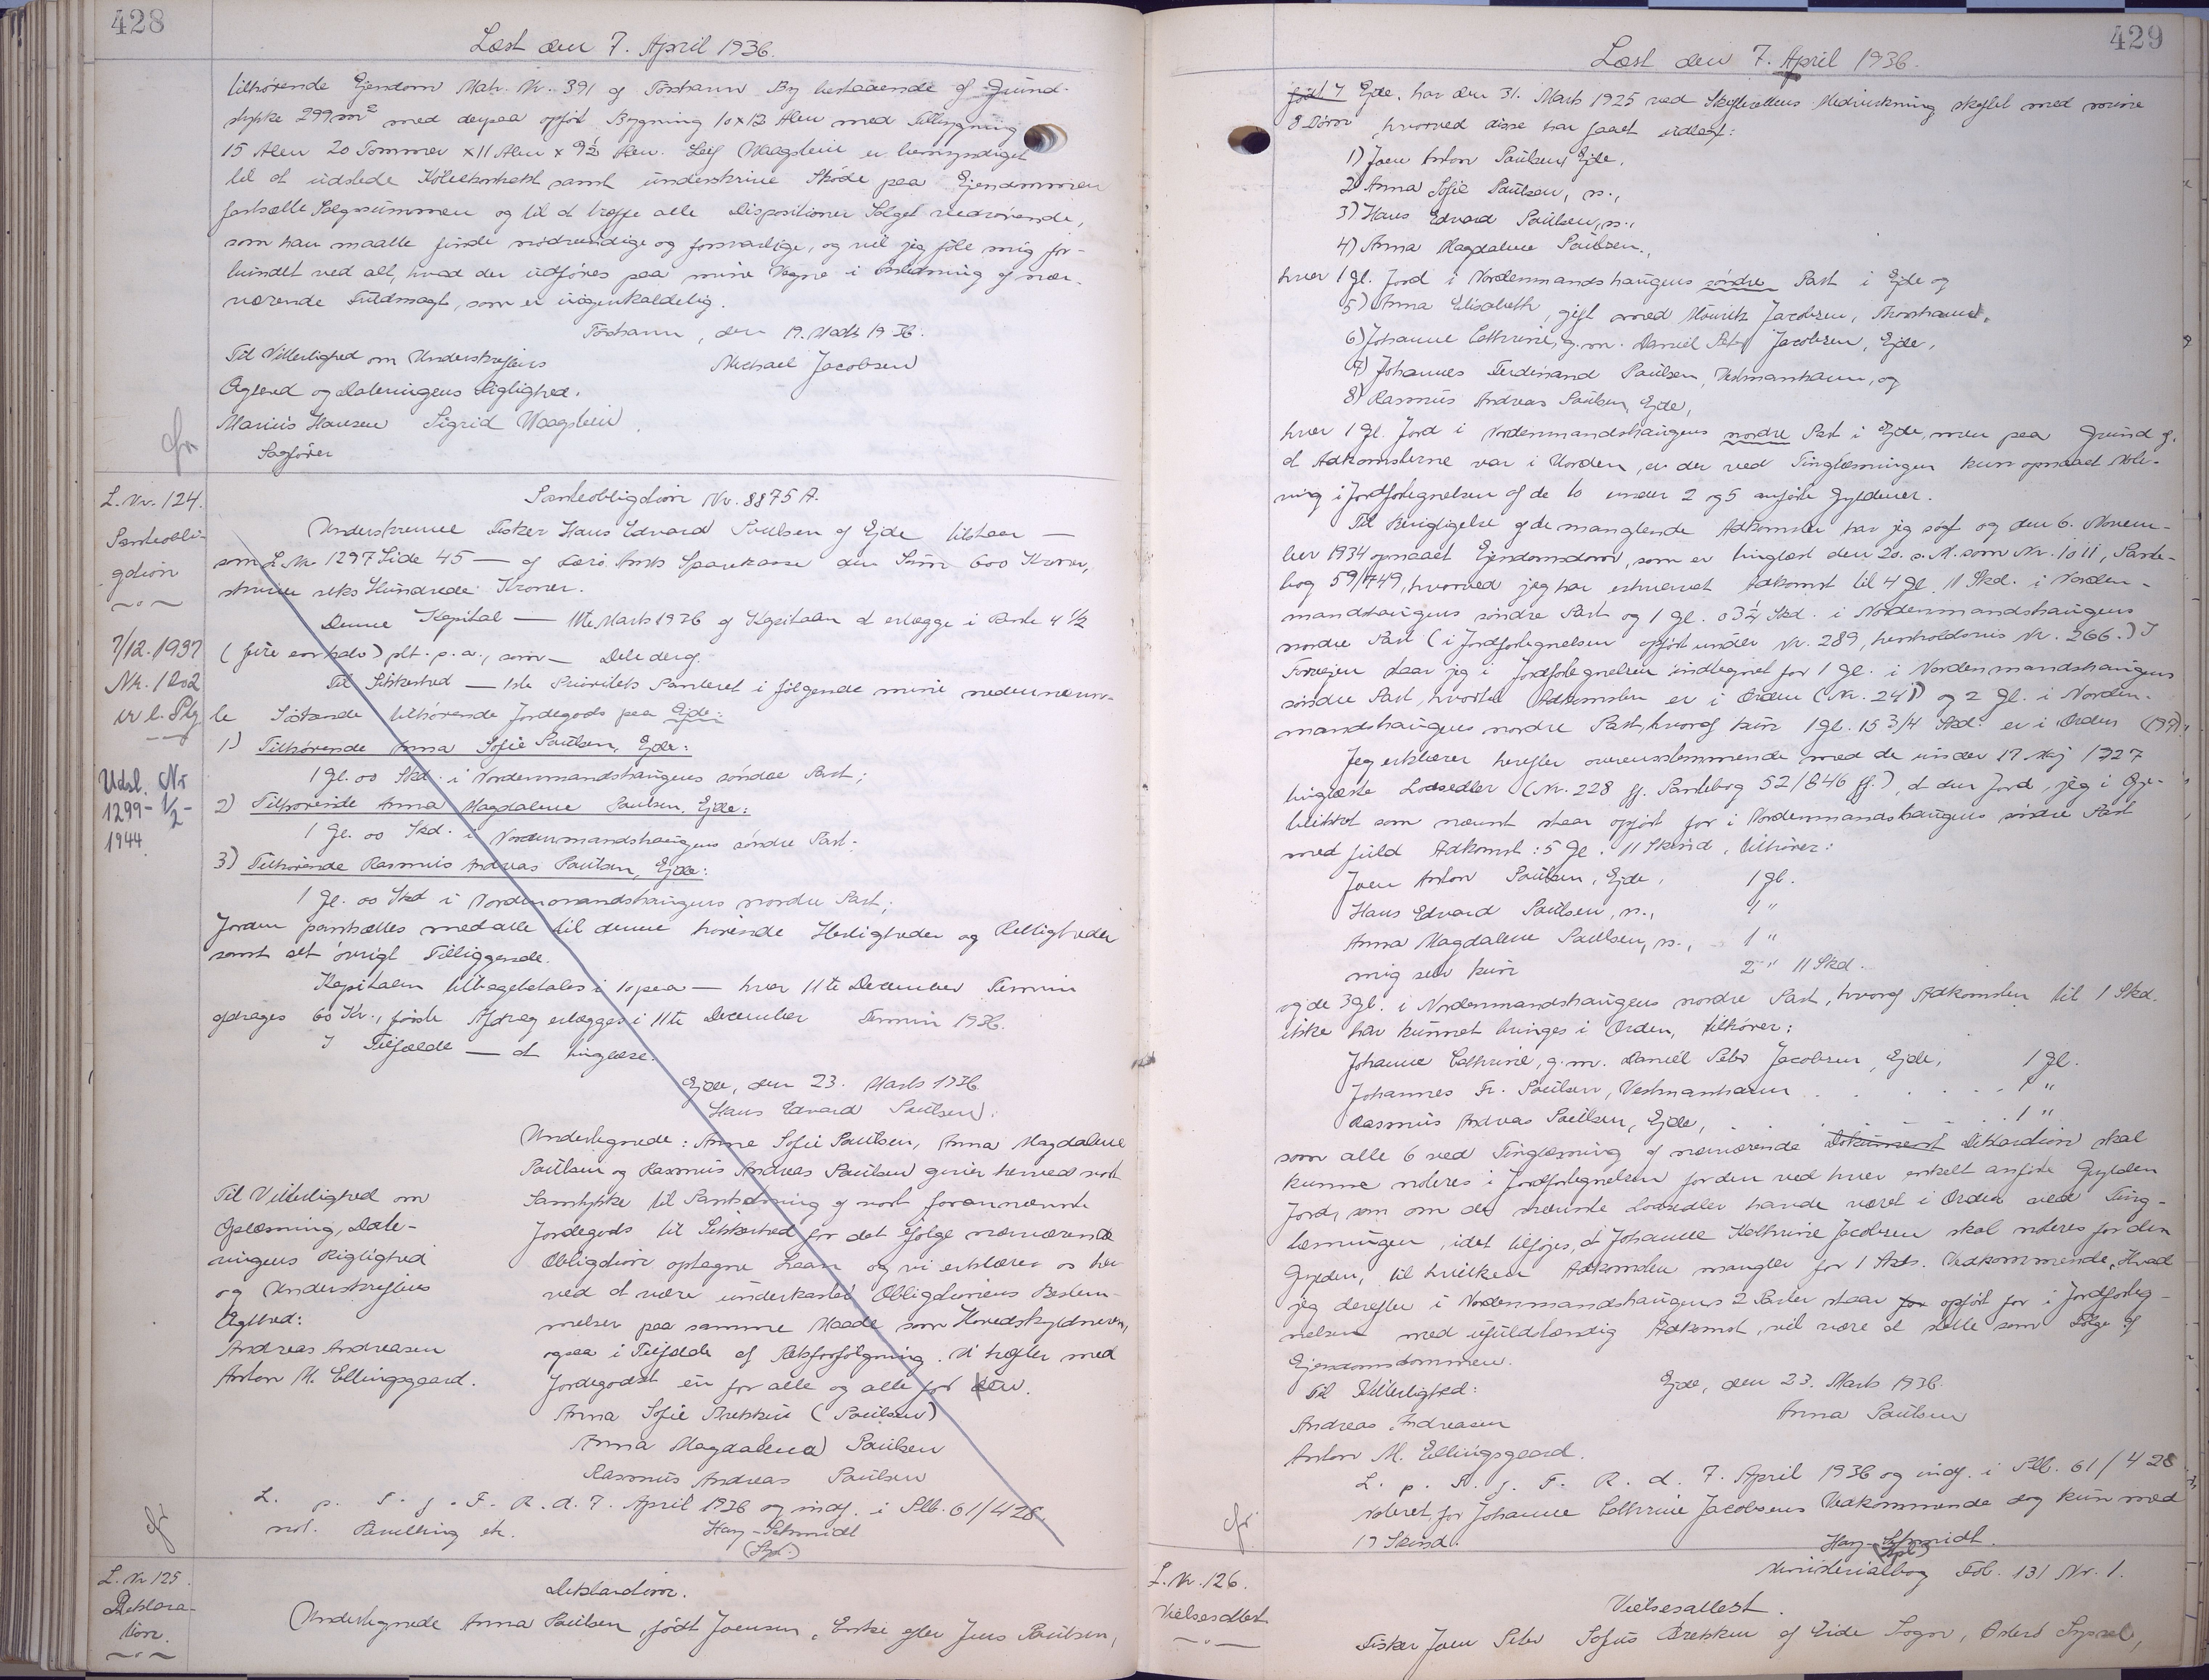 428
Læst den 7. April 1936.
tilhørende Ejendom Matr. Nr. 391 af Tórshavn By bestaaende af Grund-
stykke 299 m² med derpaa opført Bygning 10 x 12 Alen med Tilbygning
15 Alen 20 Tommer x 11 Alen x 9½ Alen. Leif Waagstein er bemyndiget
til at udstede Købekontrakt samt underskrive Skøde paa Ejendommen
fastsætte Salgssummen og til at træffe alle Dispositioner Salget vedrørende,
som han maatte finde nødvendige og forsvarlige, og vil jeg føle mig for-
bundet ved alt, hvad der udføres paa mine Vegne i Anledning af nær-
værende Fuldmagt, som er uigenkaldelig.
Tórshavn, den 19. Marts 1936.
Til Vitterlighed om Underskriftens
Michael Jacobsen
Ægthed og Dateringens Rigtighed.
Marius Hansen Sigrid Waagstein
Sagfører
L. Nr. 124.
Panteobli-
gation
7/12. 1937
Nr. 1202
Udsl. Nr
1299- 1/2-
1944.
Panteobligation Nr. 8875 A.
Underskrevne Fisker Hans Edvard Poulsen af Ejde tilstaar —
som L. Nr. 1297 Side 45 — af Færø Amts Sparekasse den Sum 600 Kroner,
skriver seks Hundrede Kroner.
Denne Kapital — 11te Marts 1936 af Kapitalen at erlægge i Rente 4½
(fire en halv) pCt. p.a., som — Dele deraf.
Til Sikkerhed — 1ste Prioritets Panteret i følgende mine nedennævn-
te Søskende tilhørende Jordegods paa Ejde:
1) Tilhørende Anna Sofie Poulsen, Ejde:
1 Gl. 00 Skd. i Nordenmandshaugens søndre Part;
2) Tilhørende Anna Magdalene Poulsen, Ejde:
1 Gl. 00 Skd. i Nordenmandshaugens søndre Part;
3) Tilhørende Rasmus Andreas Poulsen, Ejde:
1 Gl. 00 Skd i Nordenmandshaugens nordre Part;
Jorden pantsættes med alle til denne hørende Herligheder og Rettigheder
samt alt øvrigt Tilliggende.
Kapitalen tilbagebetales i 10 paa — hver 11te December Termin
afdrages 60 Kr., første Afdrag erlægges i 11te December Termin 1936.
I Tilfælde — at tinglæse.
Ejde, den 23. Marts 1936
Hans Edvard Poulsen.
Undertegnede: Anna Sofie Poulsen, Anna Magdalene
Poulsen og Rasmus Andreas Poulsen giver herved vort
Til Vitterlighed om
Samtykke til Pantsætning af vort forannævnte
Oplæsning, Date-
Jordegods til Sikkerhed for det ifølge nærværende
ringens Rigtighed
Obligation optagne Laan og vi erklærer os her-
og Underskriftens
ved at være underkastet Obligationens Bestem-
Ægthed:
melser paa samme Maade som Hovedskyldneren,
Andreas Andreasen
ogsaa i Tilfælde af Retsforfølgning. Vi hæfter med
Anton M. Ellingsgaard.
Jordegodset en for alle og alle for en.
Anna Sofie Brekkin (Poulsen)
Anna Magdalena Poulsen
Rasmus Andreas Poulsen
L. p. S. f. F. R. d. 7. April 1936 og indf. i Plb. 61/428.
not. Beretning etc.
Hay-Schmidt
L. Nr 125.
Deklara-
tion.
Deklaration.
Undertegnede Anna Poulsen, født Joensen, Enke efter Jens Poulsen,
429
Læst den 7. April 1936.
født 4 Ejde, har den 31. Marts 1925 ved Skifterettens Medvirkning skiftet med mine
8 Børn, hvorved disse har faaet udlagt:
1) Joen Anton Poulsen, Ejde,
2) Anna Sofie Poulsen, s.,
3) Hans Edvard Poulsen, s.,
4) Anna Magdalene Poulsen,
hver 1 Gl. Jord i Nordenmandshaugens søndre Part i Ejde og
5) Anna Elisabeth, gift med Mouritz Jacobsen, Thorshavn,
6) Johanne Cathrine, g.m. Daniel Peter Jacobsen, Ejde,
7) Johannes Ferdinand Poulsen, Vestmanhavn, og
8) Rasmus Andreas Poulsen, Ejde,
hver 1 Gl. Jord i Nordenmandshaugens nordre Part i Ejde, men paa Grund af,
at Adkomsterne var i Uorden, er der ved Tinglæsningen kun opnaaet Note-
ring i Jordfortegnelsen af de to under 2 og 5 anførte Gyldener.
Til Berigtigelse af de manglende Adkomster har jeg søgt og den 6. Novem-
ber 1934 opnaaet Ejendomsdom, som er tinglæst den 20. s. M. som Nr. 1011, Pante-
bog 59/749, hvorved jeg har erhvervet Adkomst til 4 Gl. 11 Skd. i Norden-
mandshaugens søndre Part og 1 Gl. 03½ Skd. i Nordenmandshaugens
nordre Part (i Jordfortegnelsen opført under Nr. 289, henholdsvis Nr. 266.) I
Forvejen staar jeg i Jordfortegnelsen indtegnet for 1 Gl. i Nordenmandshaugens
søndre Part, hvortil Adkomsten er i Orden (Nr. 241) og 2 Gl. i Norden-
mandshaugens nordre Part, hvoraf kun 1 Gl. 15 3/4 Skd. er i Orden
Jeg erklærer herefter overensstemmende med de under 17 Maj 1927
tinglæste Lodsedler (Nr. 228 ff. Pantebog 52/846 ff.), at den Jord, jeg i Øje-
blikket som nævnt staar opført for i Nordenmandshaugens søndre Part
med fuld Adkomst: 5 Gl. 11 Skind, tilhører:
Joen Anton Poulsen, Ejde, 1 Gl.
Hans Edvard Poulsen, s., 1 "
Anna Magdalene Poulsen, s., 1 "
mig selv kun 2 " 11 Skd.
og de 3 Gl. i Nordenmandshaugens nordre Part, hvoraf Adkomsten til 1 Skd.
ikke har kunnet bringes i Orden, tilhører:
Johanne Cathrine, g.m. Daniel Peter Jacobsen, Ejde, 1 Gl.
Johannes Fr. Poulsen, Vestmanhavn . . . . . 1 "
Rasmus Andreas Poulsen, Ejde, . . . . . 1 "
som alle 6 ved Tinglæsning af nærværende Dokument Deklaration skal
kunne noteres i Jordfortegnelsen for den ved hver enkelt anførte Gylden
Jord, som om de nævnte Lodsedler havde været i Orden ved Ting-
læsningen, idet tilføjes, at Johanne Kathrine Jacobsen skal noteres for den
Gylden, til hvilken Adkomsten mangler for 1 Skds. Vedkommende. Hvad
jeg derefter i Nordenmandshaugens 2 Parter staar for opført for i Jordforteg-
nelsen med ufuldstændig Adkomst, vil være at slette som Følge af
Ejendomsdommen.
Til Vitterlighed:
Ejde, den 23. Marts 1936.
Andreas Andreasen
Anna Poulsen
Anton M. Ellingsgaard.
L. p. S. f. F. R. d. 7. April 1936 og indf. i Plb. 61/428
Noteret, for Johanne Cathrine Jacobsens Vedkommende dog kun med
19 Skind.
Hay-Schmidt.
L. Nr. 126.
Vielsesattest
Ministerialbog Fol. 131 Nr. 1.
Vielsesattest.
Fisker Joen Peter Sofus Brekken af Eide Sogn, Østerø Syssel,